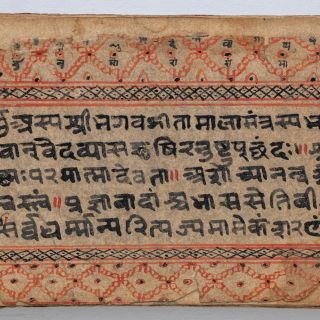 अस्य श्रीभगवद्गीतामालामंत्रस्य भ
वान्वेदव्यास ऋषिरनुष्टुप्छंदः॥
परमात्मा देवता॥ अशोच्यानन्व
स्त्वं॥ प्रज्ञावादांश्च भाषसेति बी
सर्वधर्मान्परित्यज्य मामेकं शरणं